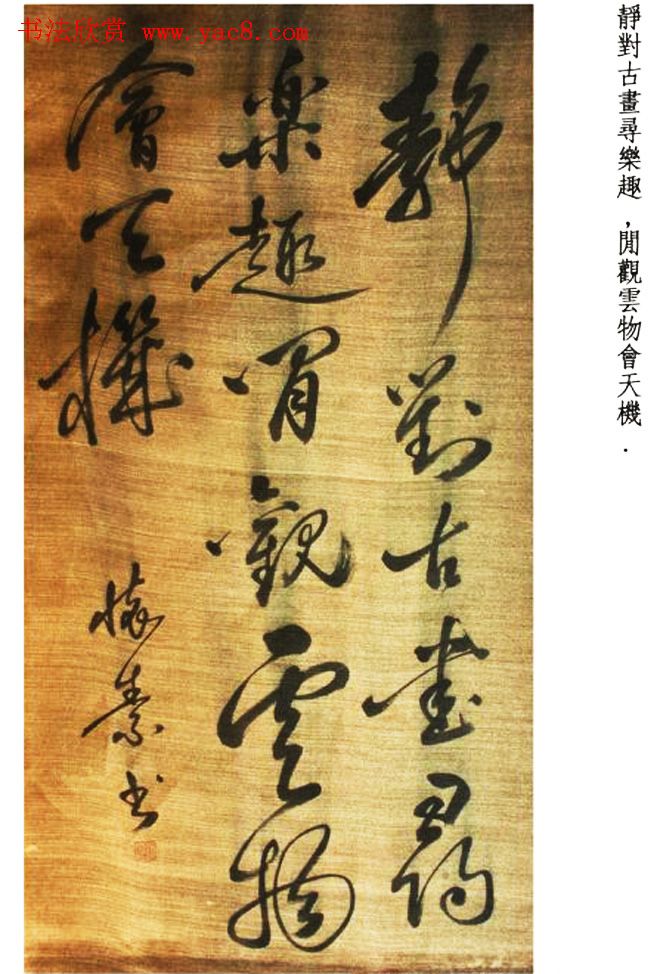 书法欣赏 www.yac8.com
靜對古畫尋樂趣，閒觀雲物會天機．
靜對古畫尋
樂趣閒觀雲物
會天機
懷素书